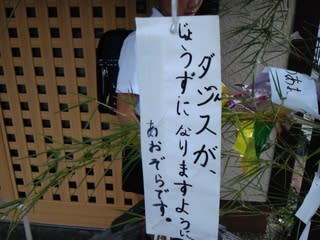 ダンスが、
じょうずになりますように
あおぞらです。